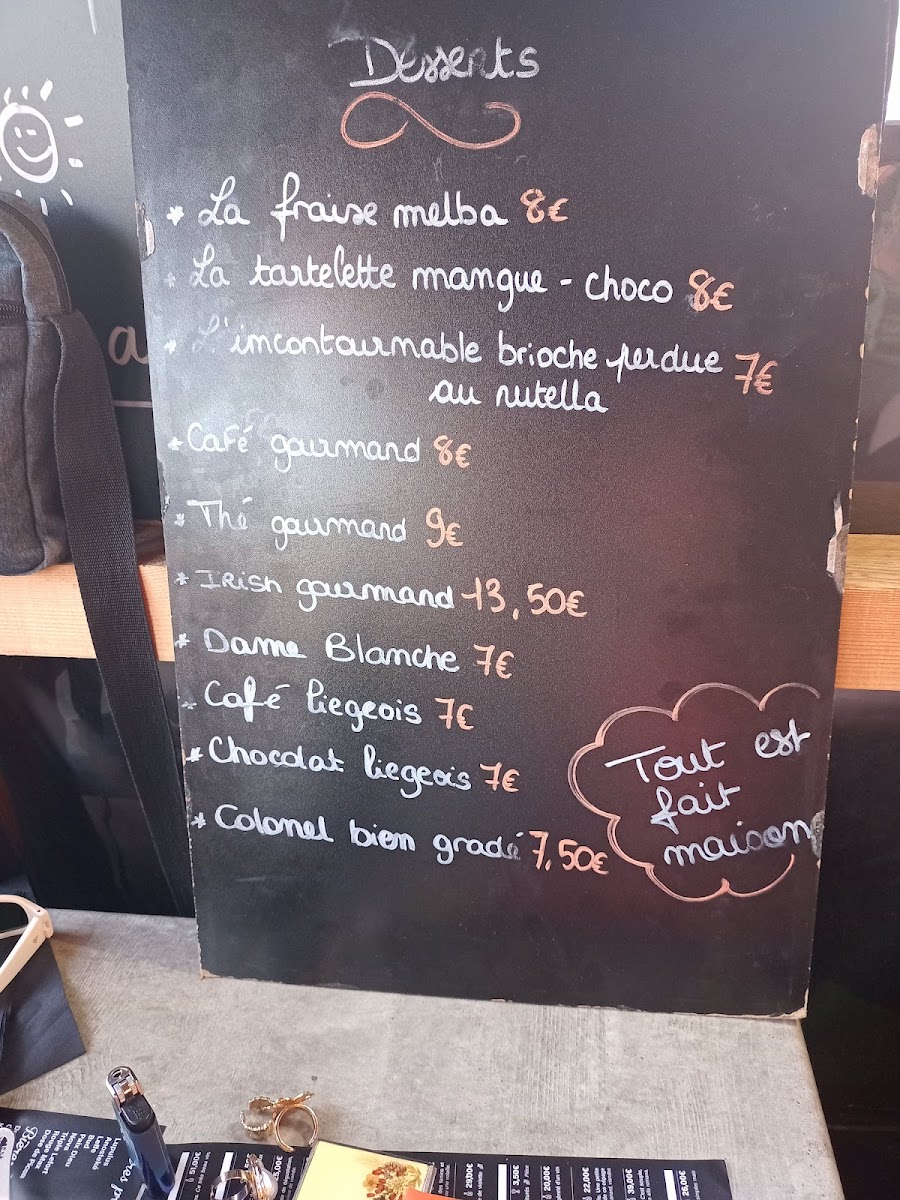 Desserts
* La fraise melba 8€
* La tartelette mangue - choco 8€
* L'incontournable brioche perdue 7€
au nutella
* Café gourmand 8€
* Thé gourmand 9€
* Irish gourmand 13,50€
* Dame Blanche 7€
* Café liegeois 7€
* Chocolat liegeois 7€
* Colonel bien gradé 7,50€
Tout est
fait
maison
a
51,00€
29,00€
3,50€
20,00€
22,00€
30,00€
26,00€